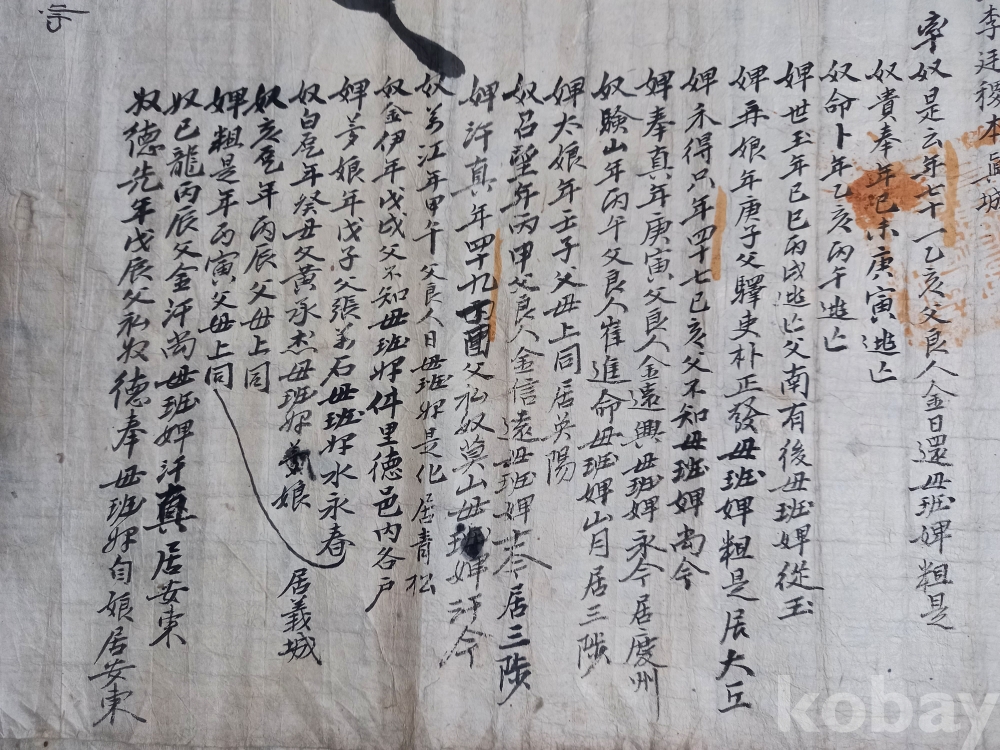 李廷稷本畐城
率奴是云年七十一乙亥父良人金日還母班婢粗是
奴貴奉年己未庚寅逃亡
奴命卜年乙亥丙午逃亡
婢世玉年己巳丙戌逃亡父南有後母班婢從玉
婢再娘年庚子父驛吏朴正發母班婢粗是居大丘
婢禾得只年四十七己亥父不知母班婢尚今
婢奉真年庚寅父良人金遠興母班婢永今居慶州
奴險山年丙午父良人崔進命母班婢山月居三陟
婢太娘年壬子父母上同居英陽
奴召堅年丙甲父良人金信遠母班婢士今居三陟
婢許真年四十九酉父私奴莫山母班婢汗今
奴江年甲午父良人日母班婢是化居青松
奴金伊年戊戌父不知母班婢件里德邑內各戶
婢夢娘年戊子父張石母班婢水永春
奴白尨年癸丑父黃承杰母班婢娘居義城
奴亥尨年丙辰父母上同
婢粗是年丙寅父母上同
奴已龍丙辰父金汗尚母班婢汗真居安東
奴德先年戊辰父私奴德奉母班婢自娘居安東
kobay